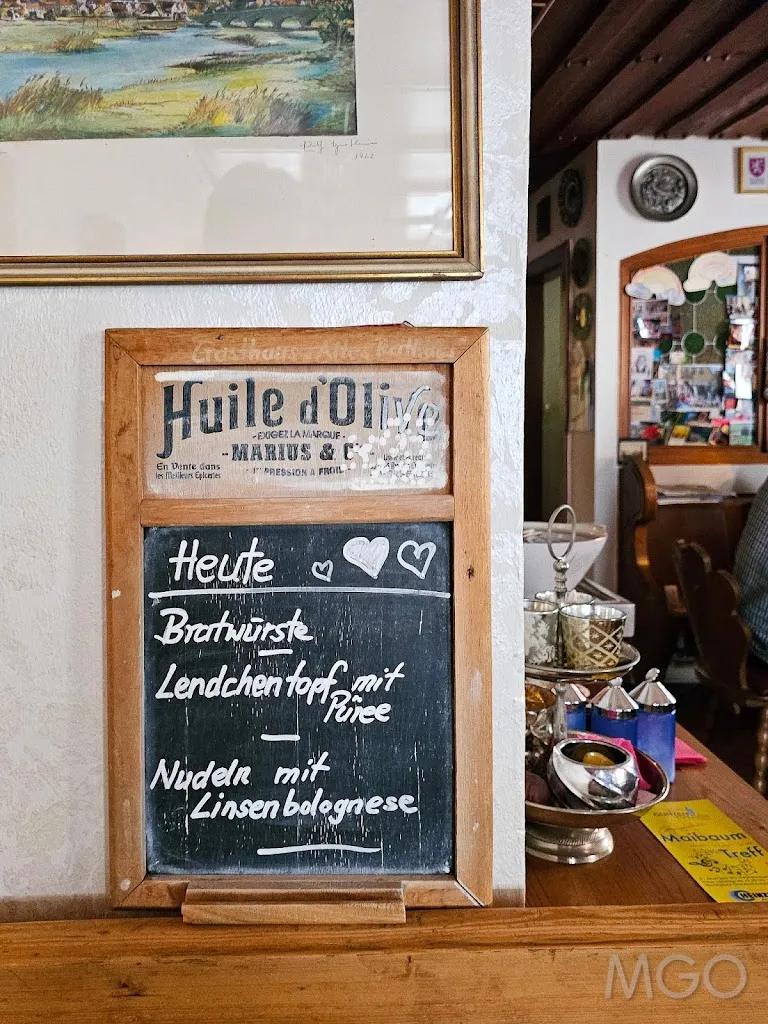 1962
Gasthaus Altes Rathaus
Huile d'Olive
- EXIGEZ LA MARQUE -
- MARIUS & Cie
En Vente dans
les Meilleurs Épiceries
1ère PRESSION À FROID
Heute
Bratwürste
Lendchentopf mit
Püree
Nudeln mit
Linsenbolognese
Maibaum
Treff
HEINZ
MGO